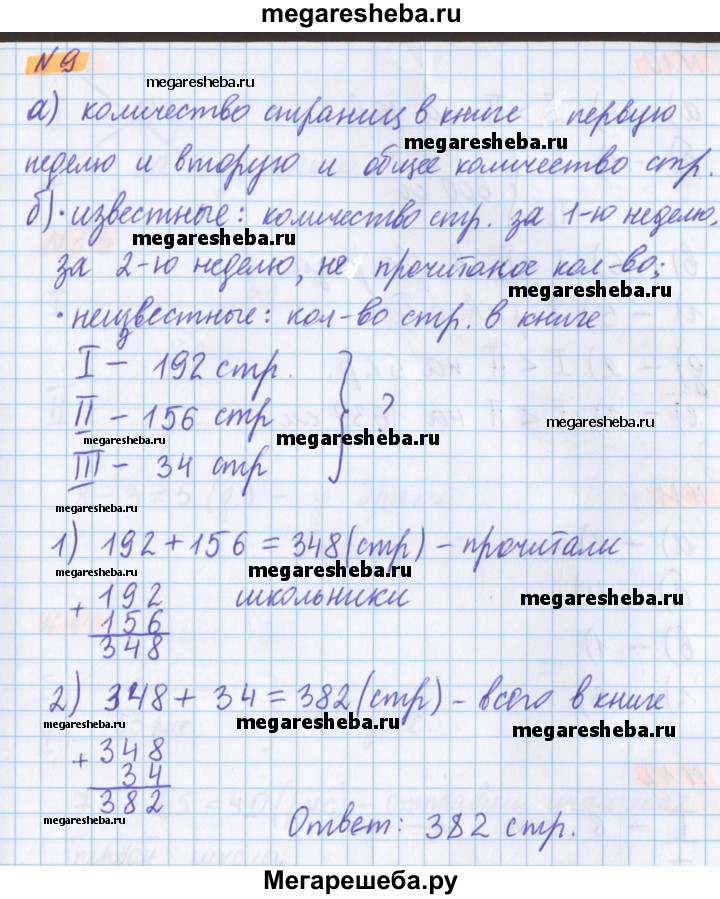 megaresheba.ru
N 9
megaresheba.ru
а) количество страниц в книге первую
megaresheba.ru
неделю и вторую и общее количество стр.
б) · известные: количество стр. за 1-ю неделю,
megaresheba.ru
за 2-ю неделю, не прочитаное кол-во;
megaresheba.ru
· неизвестные: кол-во стр. в книге
I – 192 стр.
II – 156 стр ?
megaresheba.ru
megaresheba.ru
megaresheba.ru
III – 34 стр
megaresheba.ru
megaresheba.ru
1) 192 + 156 = 348 (стр) – прочитали
megaresheba.ru
megaresheba.ru
+ 192 школьники
megaresheba.ru
156
348
2) 348 + 34 = 382 (стр) – всего в книге
megaresheba.ru
megaresheba.ru
megaresheba.ru
+ 348
34
382
megaresheba.ru
Ответ: 382 стр.
Мегарешеба.ру